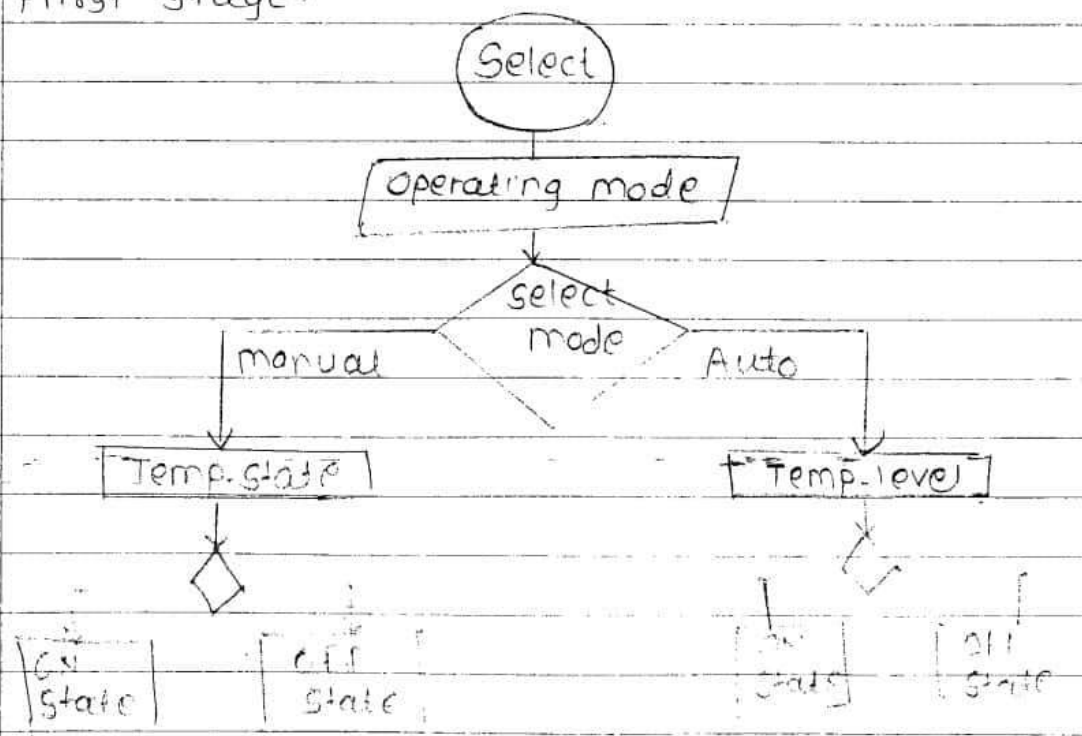 Select
operating mode
select
mode
manual
Auto
Temp. State
Temp. level
ON
State
OFF
State
ON
State
OFF
State